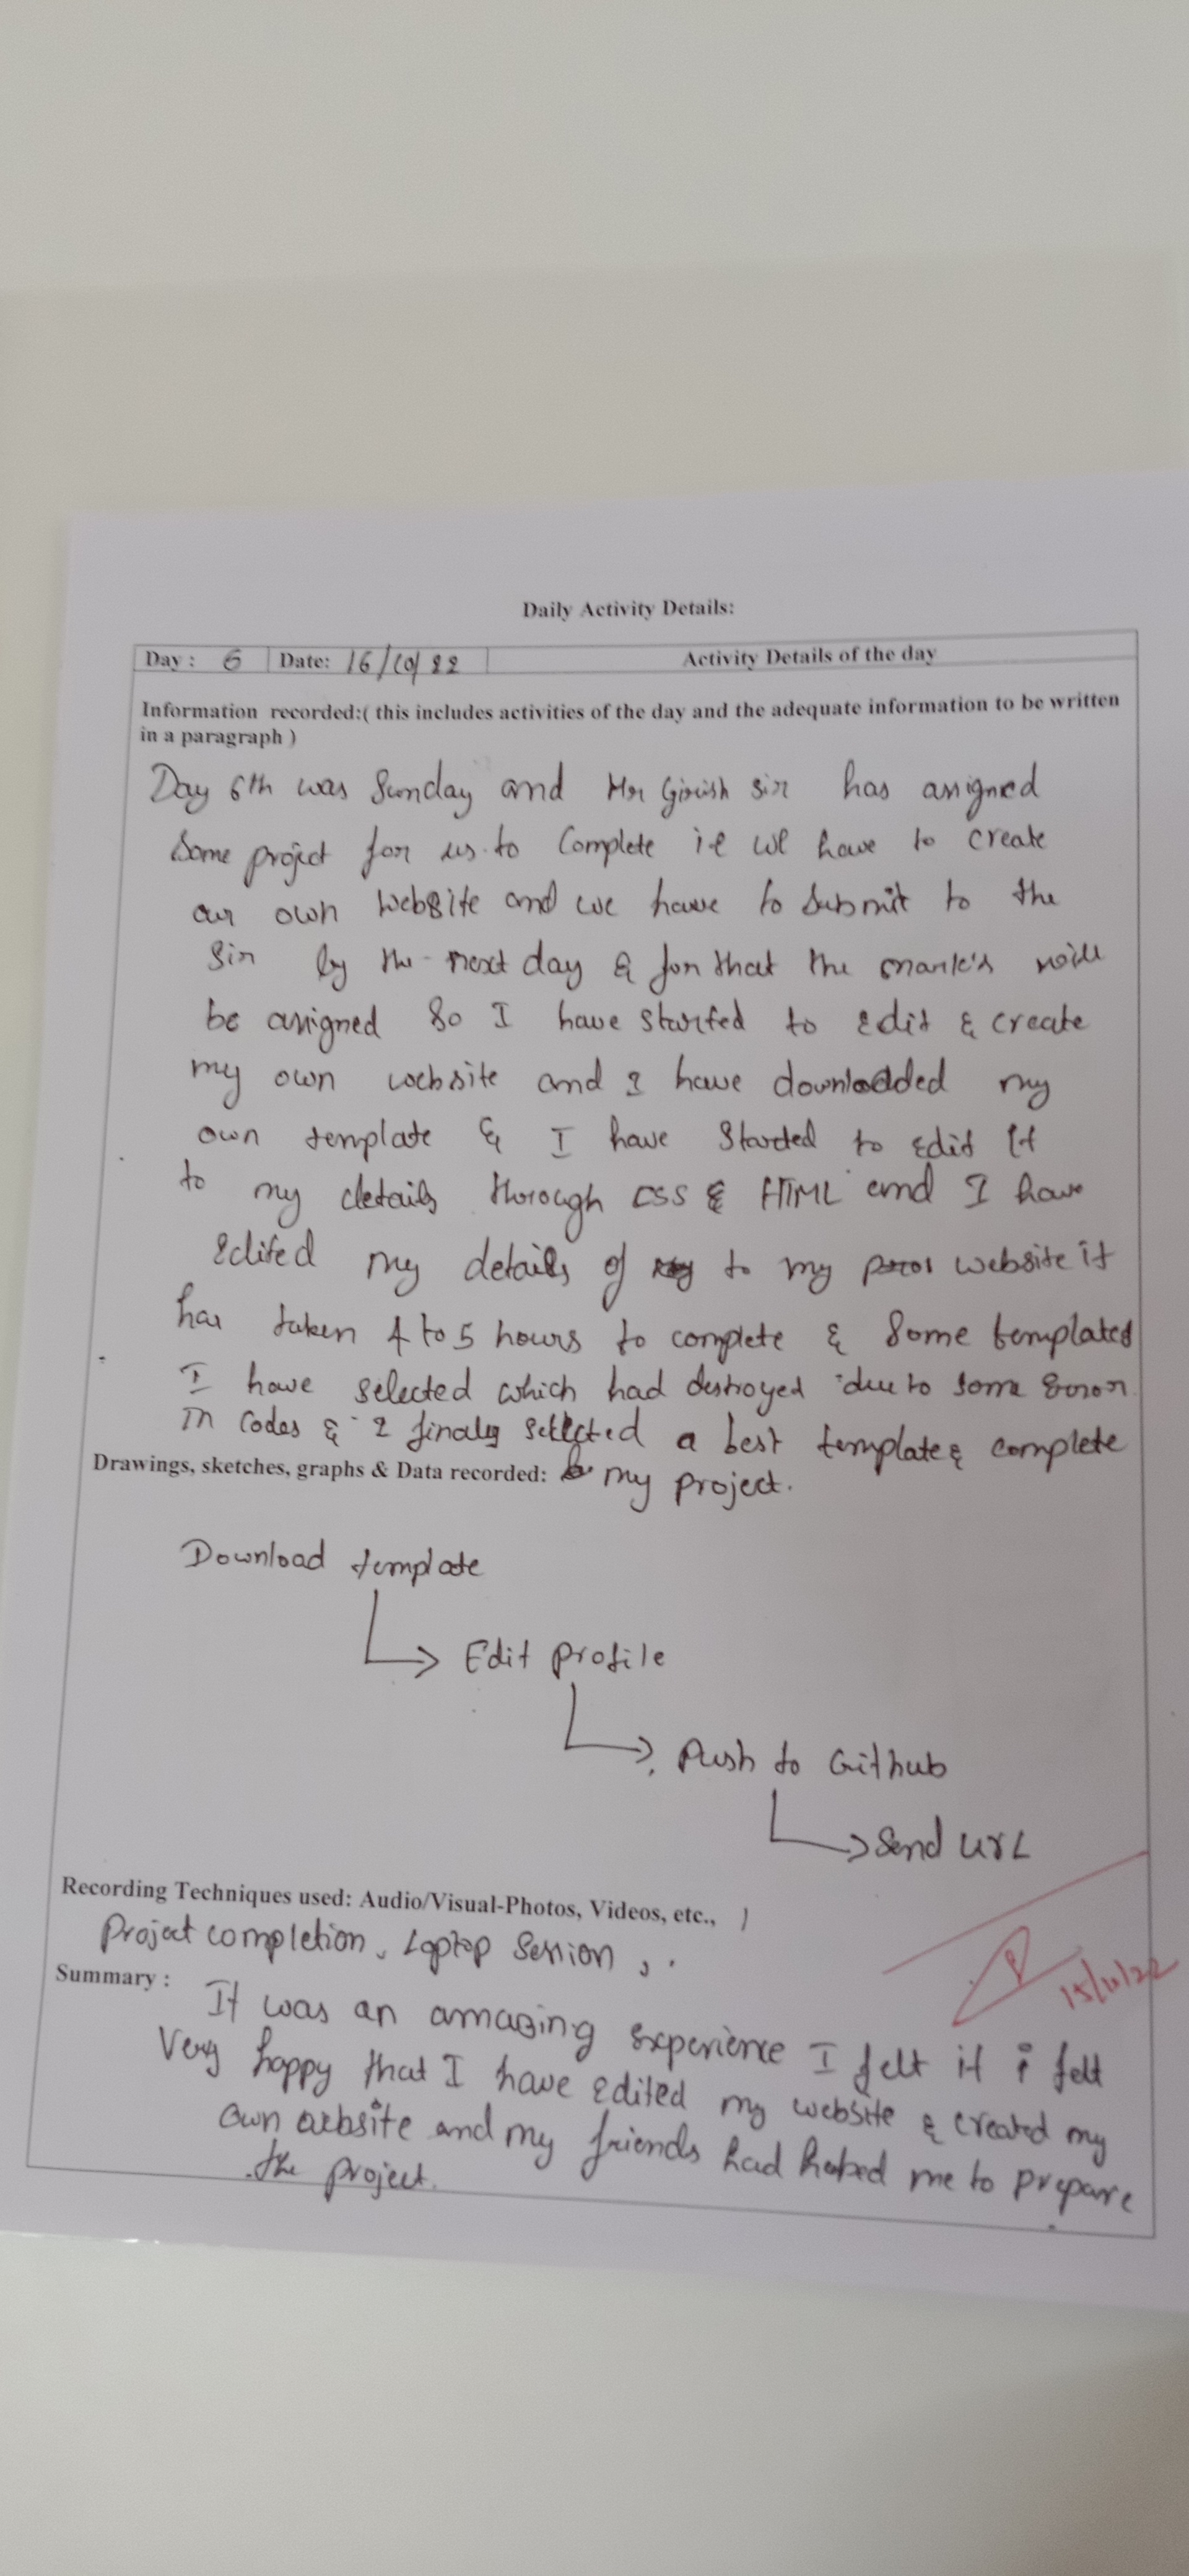 Daily Activity Details:
Day : 6 Date: 16/10/22 Activity Details of the day
Information recorded:( this includes activities of the day and the adequate information to be written
in a paragraph )
Day 6th was Sunday and Mr Girish sir has assigned
some project for us to complete i.e we have to create
our own website and we have to submit to the
sir by the next day & for that the mark's will
be assigned so I have started to edit & create
my own website and I have downloaded my
own template & I have started to edit it
to my details thorough CSS & HTML and I have
edited my details of to my website it
has taken 4 to 5 hours to complete & some templated
I have selected which had destroyed due to some error
in codes & I finaly selected a best template & complete
Drawings, sketches, graphs & Data recorded: my project.
Download template
Edit profile
Push to Github
Send URL
Recording Techniques used: Audio/Visual-Photos, Videos, etc.,
Project completion, Laptop Session,
15/10/22
Summary : It was an amazing experience I felt it i felt
Very happy that I have edited my website & created my
own website and my friends had helped me to prepare
the project.